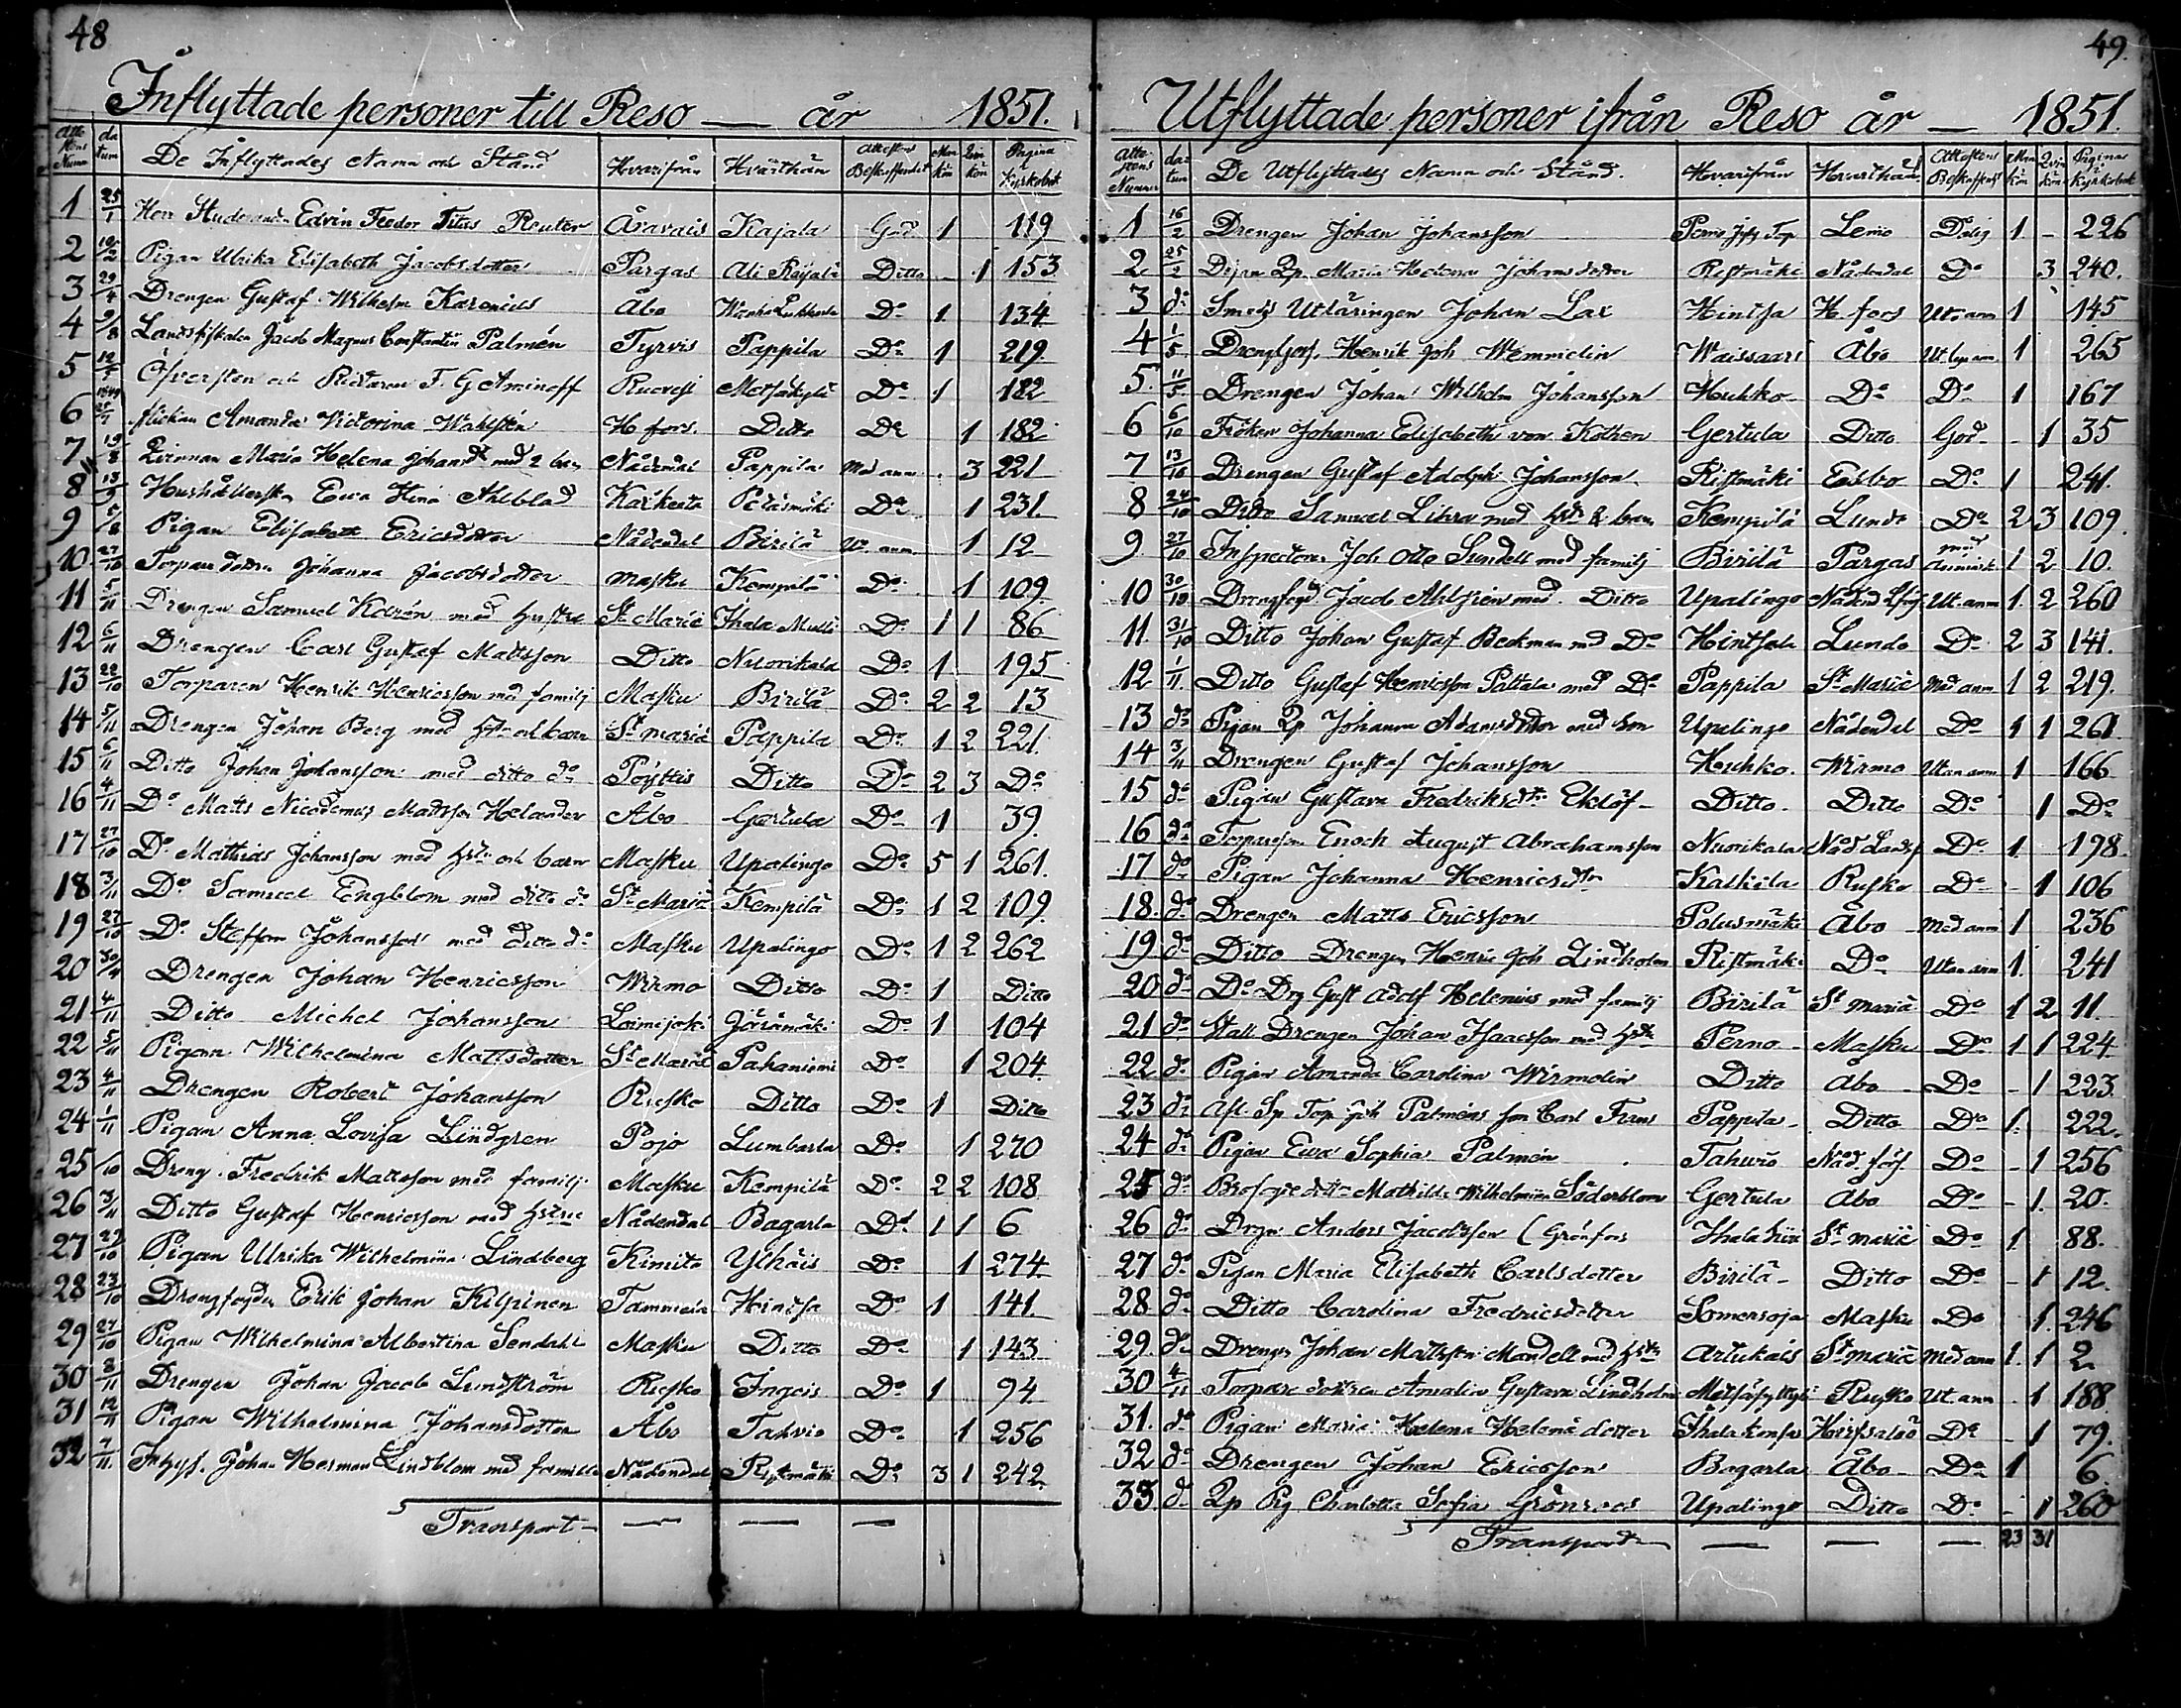 48
Inflyttade personer till Reso — år 1851.
Attestens Numer datum De Inflyttades Namn och Stånd Hvarifrån Hvarthän Attestens Beskaffenhet Man kön Qvin kön Pagina i Kyrkobok
1 25/1 Herr Studeranden Edvin Feodor Titus Reuter Åravais Kajala God 1 119
2 10/2 Pigan Ulrika Elisabeth Jacobsdotter Pargas Ali Räjälä Ditto - 1 153
3 29/4 Drengen Gustaf Wilhelm Åbo Do 1 134
4 9/8 Landsfiskalen Jacob Magnus Constantin Palmén Tyrvis Pappila Do 1 219
5 Öfversten och Riddaren F. G Aminoff Ruovesi Do 1 182
6 flickan Amanda Victorina Wahlstén H fors. Ditto Do 1 182
7 19/8 Qvinnan Maria Helena Johansdr med 2 barn Nådendal Pappila Med anm 3 221
8 13/9 Hushållerskan Eva Ahlblad Do 1 231.
9 5/8 Pigan Elisabeth Ericsdotter Nådendal Birilä Ut anm 1 12
10. 27/10 Torpare dottren Johanna Jacobsdotter Masku Kempilä Do 1 109.
11 5/11 Drengen Samuel Karén med hustru St Mariæ Ihala Do 1 1 86
12 6/11 Drengen Carl Gustaf Mattsson Ditto Nuorikala Do 1 195
13 22/10 Torparen Henrik Henricsson med familj Masku Birilä Do 2 2 13
14 5/11 Drengen Johan Berg med hstr och barn St mariæ Pappila Do 1 2 221.
15 6/11 Ditto Johan Johansson med ditto do Pöyttis Ditto Do 2 3 Do
16 4/11 Do Matts Nicodemus Mattsson Helander Åbo Gertula Do 1 39.
17 27/10 Do Mathias Johansson med hstr och barn Masku Upalingo Do 5 1 261.
18 3/11 Do Samuel Engblom med ditto do St Mariæ Kempilä Do 1 2 109.
19 27/10 Do Steffan Johansson med ditto do Masku Upalingo Do 1 2 262
20 30/4 Drengen Johan Henricsson Wirmo Ditto Do 1 Ditto
21 4/11 Ditto Michel Johansson Loimijoki Järämäki Do 1 104
22 5/11 Pigan Wilhelmina Mattsdotter St Mariæ Pahaniemi Do 1 204.
23 4/11 Drengen Robert Johansson Rusko Ditto Do 1 Ditto
24 1/11 Pigan Anna Lovisa Lindgren Pojo Lumbarla Do 1 270
25 /10 Dreng. Fredrik Mattsson med familj. Masku Kempilä Do 2 2 108
26 3/11 Ditto Gustaf Henricsson med hstru Nådendal Bagarla Do 1 1 6
27 29/10 Pigan Ulrika Wilhelmina Lindberg Kimito Ylhäis Do 1 274
28 23/10 Drengfogden Erik Johan Kilpinen Tammela Hintsa Do 1 141.
29 27/10 Pigan Wilhelmina Albertina Sendahl Masku Ditto Do 1 143
30 3/11 Drengen Johan Jacob Lundström Rusko Ingois Do 1 94.
31 12/11 Pigan Wilhelmina Johansdotter Åbo Tahvio Do 1 256
32 7/11 Inhys. Johan Herman Lindblom med familie Nådendal Ristmäki Do 3 1 242.
Transport — — — —
49.
Utflyttade personer ifrån Reso år — 1851.
Attestens Nummer datum De Utflyttades Namn och Stånd. Hvarifrån Hvarthän Attestens Beskaffenhet Man kön Qvin kön Paginæ i Kyrkobok
1 16/2 Drengen Johan Johansson Lemo Dålig 1 - 226
2 25/2 Dejan Qp. Maria Helena Johansdotter Ristmäki Nådendal Do 3 240.
3 do Smeds Utläringen Johan Lax Hintsa H fors Ut. anm 1 145
4 1/5 Henrik Joh Wemmelin Waissaari Åbo 1 265
5. 11/5 Drengen Johan Wilhelm Johansson Huhko Do Do 1 167
6 6/10 Fröken Johanna Elisabeth von Kothen Gertula Ditto God - 1 35
7 13/10 Drengen Gustaf Adolph Johansson Ristmäki Esbo Do 1 241.
8 24/10 Ditto Samuel med hstr & barn Kempilä Lundo Do 2 3 109.
9 27/10 Inspectoren Joh Otto Sundell med familj Birilä Pargas med anmärk 1 2 10.
10 30/10 Drengfogd Jacob Ahlstén med Ditto Upalingo Ut. anm 1. 2 260
11 31/10 Ditto Johan Gustaf Beckman med Do Hintsala Lundo Do 2 3 141.
12 1/11. Ditto Gustaf Henricsson Pattala med Do Pappila St Mariæ Med anm 1 2 219.
13 do Pigan Qp Johanna Adamsdotter med son Upalingo Nådendal Do 1 1 261
14 3/11 Drengen Gustaf Johansson Huhko. Wirmo Utan anm 1 166
15 do Pigan Gustava Fredriksdtr Eklöf Ditto. Ditto Do 1 Do
16 do Torpareson Enoch August Abrahamsson Nuorikala Nåd Landsf Do 1. 198.
17 do Pigan Johanna Henricsdtr Kaskila Rusko Do - 1 106
18. do Drengen Matts Ericsson Åbo Med anm 1 236
19 do Ditto Drengen Henric Joh Lindholm Ristmäki Do Utan anm 1. 241
20 do Do Drg Gust Adolf Helenius med familj Birilä St mariæ Do 1 2 11
21 do Stall Drengen Johan Isaacsson med hstr Perno Masku Do 1 1 224
22 do Pigan Amanda Carolina Wirmolin Ditto Åbo Do - 1 223.
23 do Afl. Sp Torp Joh Palméns son Carl Frans Pappila Ditto Do 1. 222.
24 do Pigan Ewa Sophia Palmén Tahvio Nåd. förs Do - 1 256
25 do Mathilda Wilhelmina Söderblom Gertula Åbo Do - 1. 20.
26 do Drgn Anders Jacobsson (Grönfors St mariæ Do 1 88.
27 do Pigan Maria Elisabeth Carlsdotter Birilä Ditto Do - 1 12.
28 do Ditto Carolina Fredricsdotter Somersoja Masku Do 1. 246
29. do Drengen Johan Mattsson Mandell med hstr Artukais St mariæ Med anm 1. 1 2
30 4/11 Torpare dottren Amalia Gustava Lindholm Rusko Ut. anm - 1 188
31. do Pigan Maria Helena Helenä dotter Do - 1 79.
32 do Drengen Johan Ericsson Bagarla Åbo Do 1 6.
33 do Qp Pig Charlotta Sofia Grönroos Upalingo Ditto Do - 1 260
Transport — — — 23 31